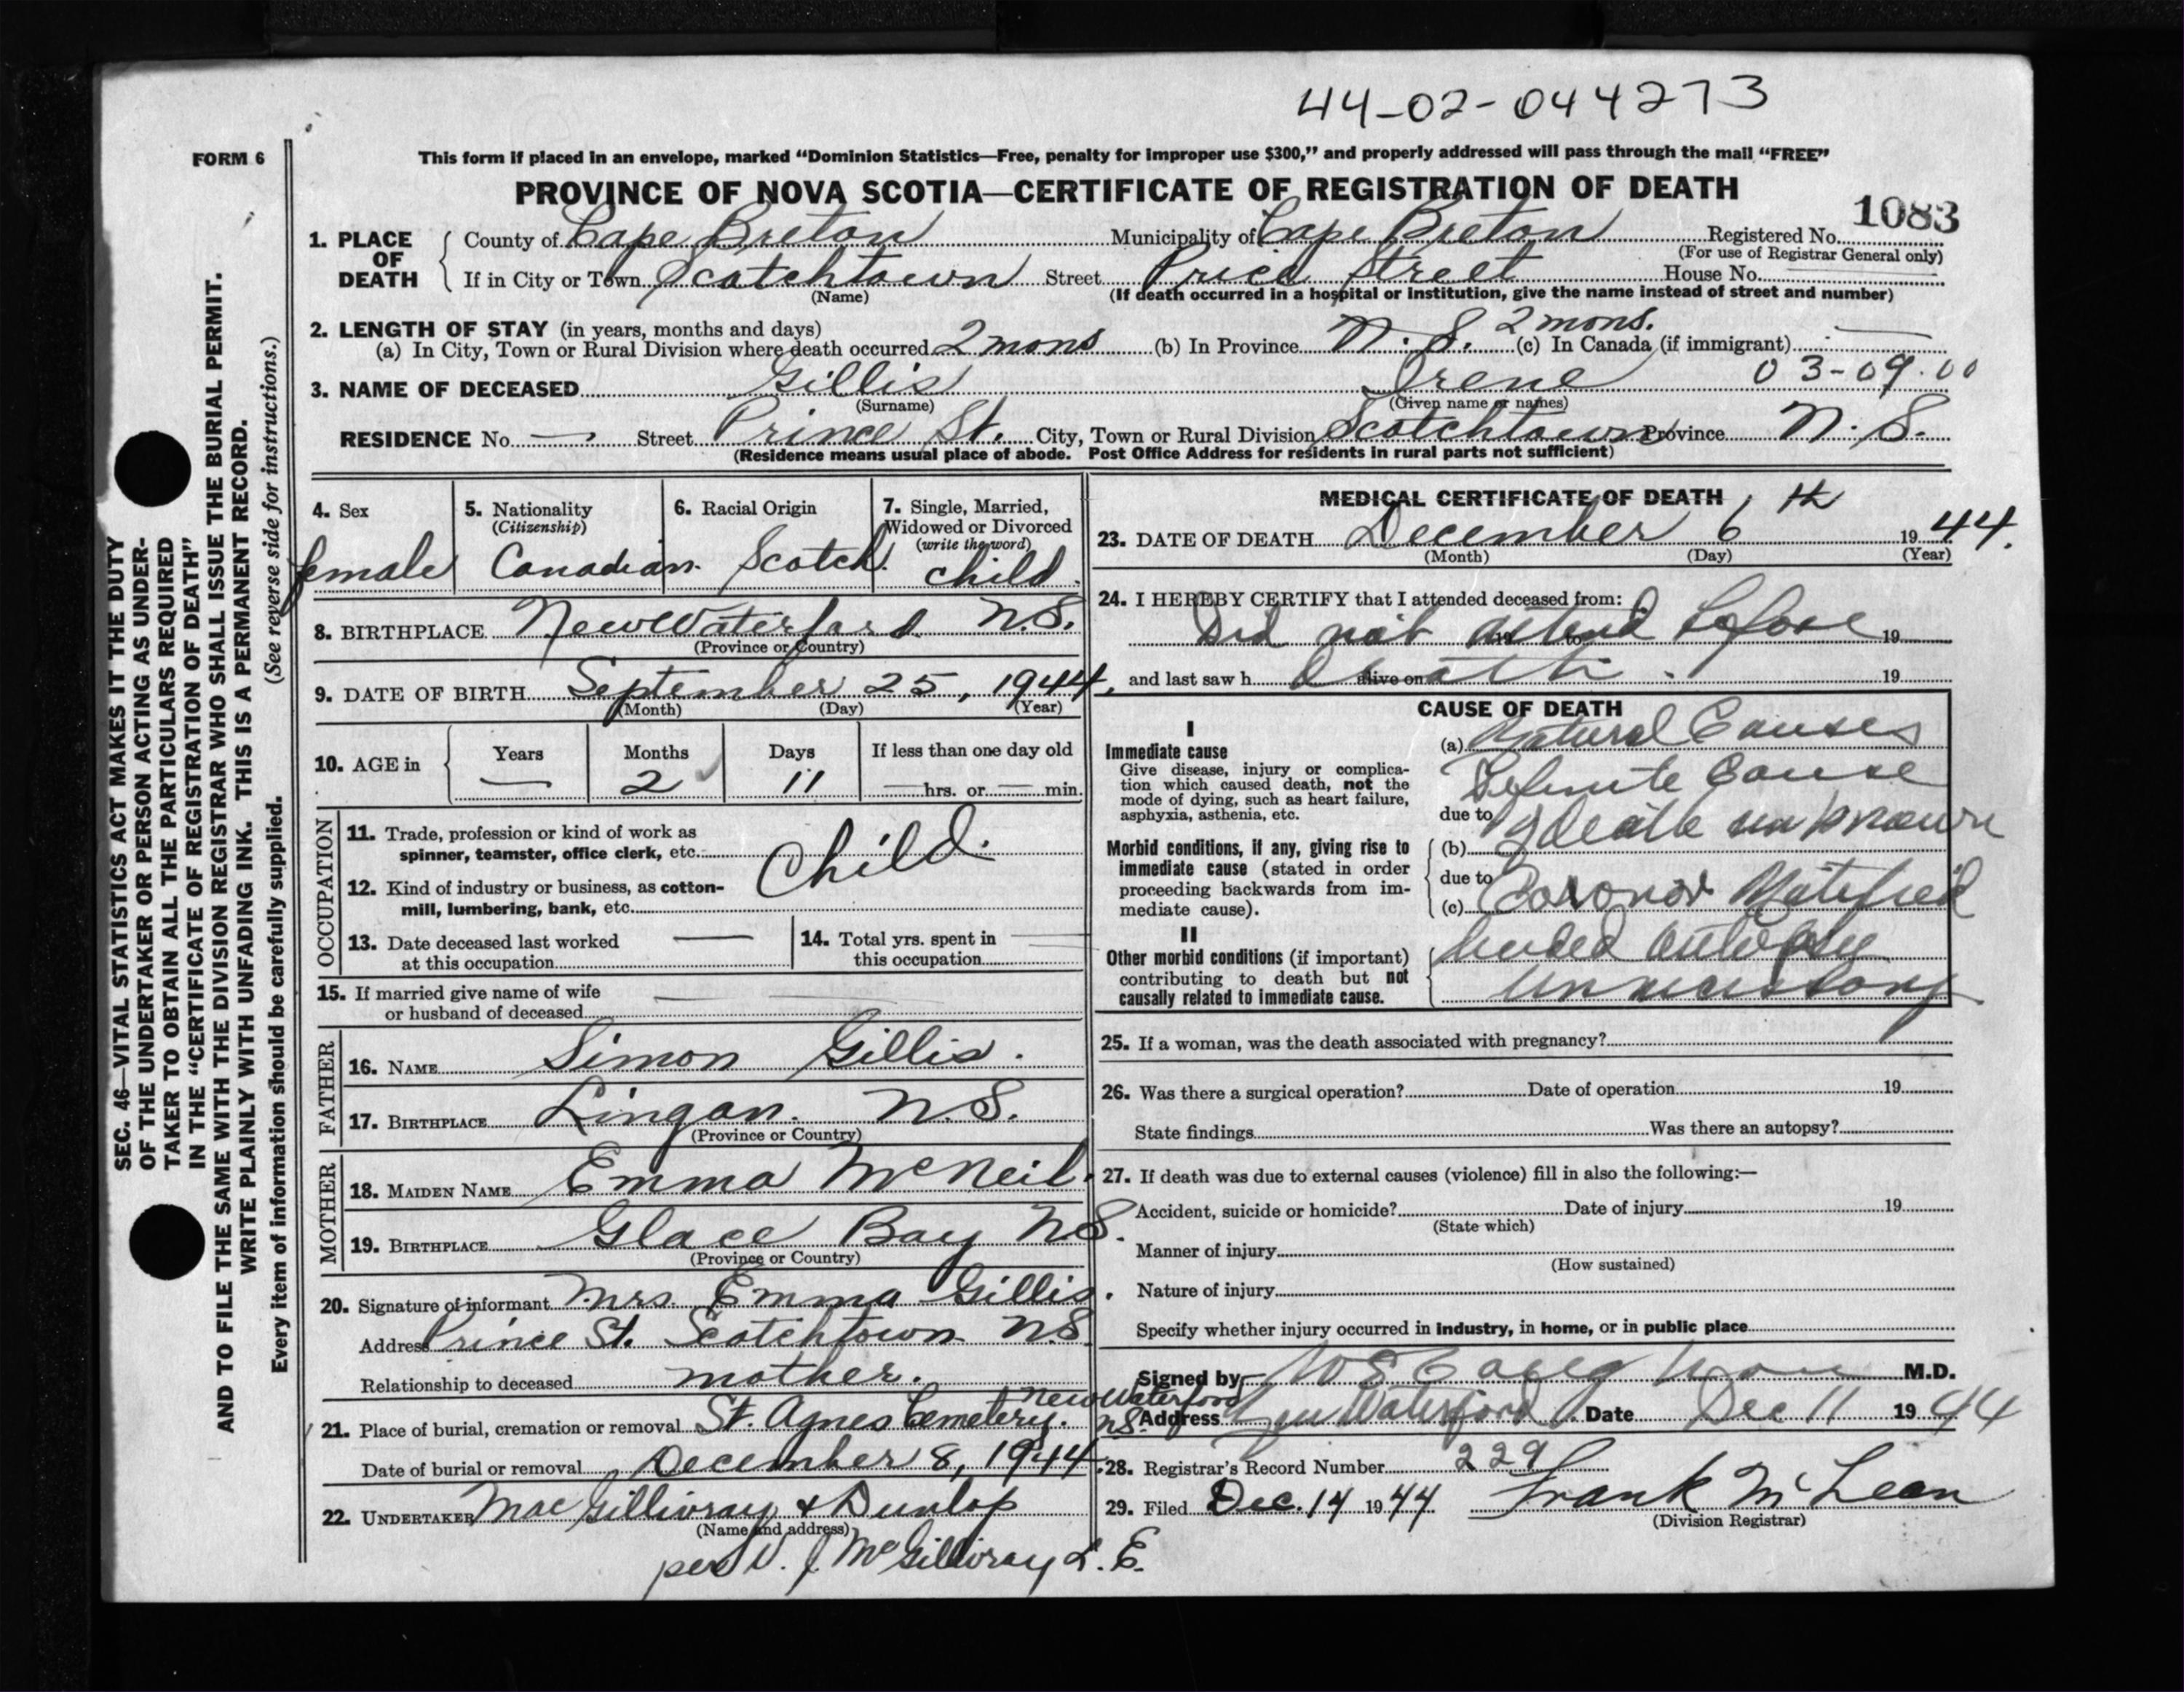 44-02-044273
FORM 6
This form if placed in an envelope, marked “Dominion Statistics—Free, penalty for improper use $300,” and properly addressed will pass through the mail “FREE”
PROVINCE OF NOVA SCOTIA—CERTIFICATE OF REGISTRATION OF DEATH
1083
1. PLACE OF DEATH County of Cape Breton Municipality of Cape Breton Registered No.
(For use of Registrar General only)
If in City or Town Scotchtown Street Price Street House No.
(Name) (If death occurred in a hospital or institution, give the name instead of street and number)
2. LENGTH OF STAY (in years, months and days)
(a) In City, Town or Rural Division where death occurred 2 mons (b) In Province N. S. 2 mons. (c) In Canada (if immigrant) —
3. NAME OF DECEASED Gillis Irene 03-09-00
(Surname) (Given name or names)
RESIDENCE No. — Street Prince St. City, Town or Rural Division Scotchtown Province N. S.
(Residence means usual place of abode. Post Office Address for residents in rural parts not sufficient)
4. Sex female
5. Nationality (Citizenship) Canadian
6. Racial Origin Scotch
7. Single, Married, Widowed or Divorced (write the word) child.
8. BIRTHPLACE New Waterford N.S.
(Province or Country)
9. DATE OF BIRTH September 25, 1944
(Month) (Day) (Year)
10. AGE in Years — Months 2 Days 11 If less than one day old — hrs. or — min.
OCCUPATION
11. Trade, profession or kind of work as spinner, teamster, office clerk, etc. Child.
12. Kind of industry or business, as cotton-mill, lumbering, bank, etc.
13. Date deceased last worked at this occupation —
14. Total yrs. spent in this occupation —
15. If married give name of wife or husband of deceased — —
FATHER
16. NAME Simon Gillis.
17. BIRTHPLACE Lingan. N.S.
(Province or Country)
MOTHER
18. MAIDEN NAME Emma McNeil.
19. BIRTHPLACE Glace Bay N.S.
(Province or Country)
20. Signature of informant Mrs. Emma Gillis.
Address Prince St. Scotchtown N.S
Relationship to deceased mother.
21. Place of burial, cremation or removal St. Agnes Cemetery. New Waterford N.S.
Date of burial or removal December 8, 1944.
22. UNDERTAKER MacGillivray & Dunlop
(Name and address)
per J. McGillivray L. E.
MEDICAL CERTIFICATE OF DEATH
23. DATE OF DEATH December 6th 1944.
(Month) (Day) (Year)
24. I HEREBY CERTIFY that I attended deceased from:
Did not attend before 19 to 19
and last saw h Death. alive on 19
CAUSE OF DEATH
I
Immediate cause
Give disease, injury or complication which caused death, not the mode of dying, such as heart failure, asphyxia, asthenia, etc.
(a) Natural Causes
Definite Cause
due to of death unknown
Morbid conditions, if any, giving rise to immediate cause (stated in order proceeding backwards from immediate cause).
(b)
due to
(c) Coronor Notified
II
Other morbid conditions (if important) contributing to death but not causally related to immediate cause.
autopsy
unnecessary
25. If a woman, was the death associated with pregnancy?
26. Was there a surgical operation? Date of operation 19
State findings Was there an autopsy?
27. If death was due to external causes (violence) fill in also the following:—
Accident, suicide or homicide? Date of injury 19
(State which)
Manner of injury
(How sustained)
Nature of injury
Specify whether injury occurred in industry, in home, or in public place
Signed by M.D.
Address New Waterford Date Dec 11 1944
28. Registrar's Record Number 229
29. Filed Dec. 14 1944 Frank McLean
(Division Registrar)
SEC. 46—VITAL STATISTICS ACT MAKES IT THE DUTY
OF THE UNDERTAKER OR PERSON ACTING AS UNDER-
TAKER TO OBTAIN ALL THE PARTICULARS REQUIRED
IN THE “CERTIFICATE OF REGISTRATION OF DEATH”
AND TO FILE THE SAME WITH THE DIVISION REGISTRAR WHO SHALL ISSUE THE BURIAL PERMIT.
WRITE PLAINLY WITH UNFADING INK. THIS IS A PERMANENT RECORD.
Every item of information should be carefully supplied. (See reverse side for instructions.)